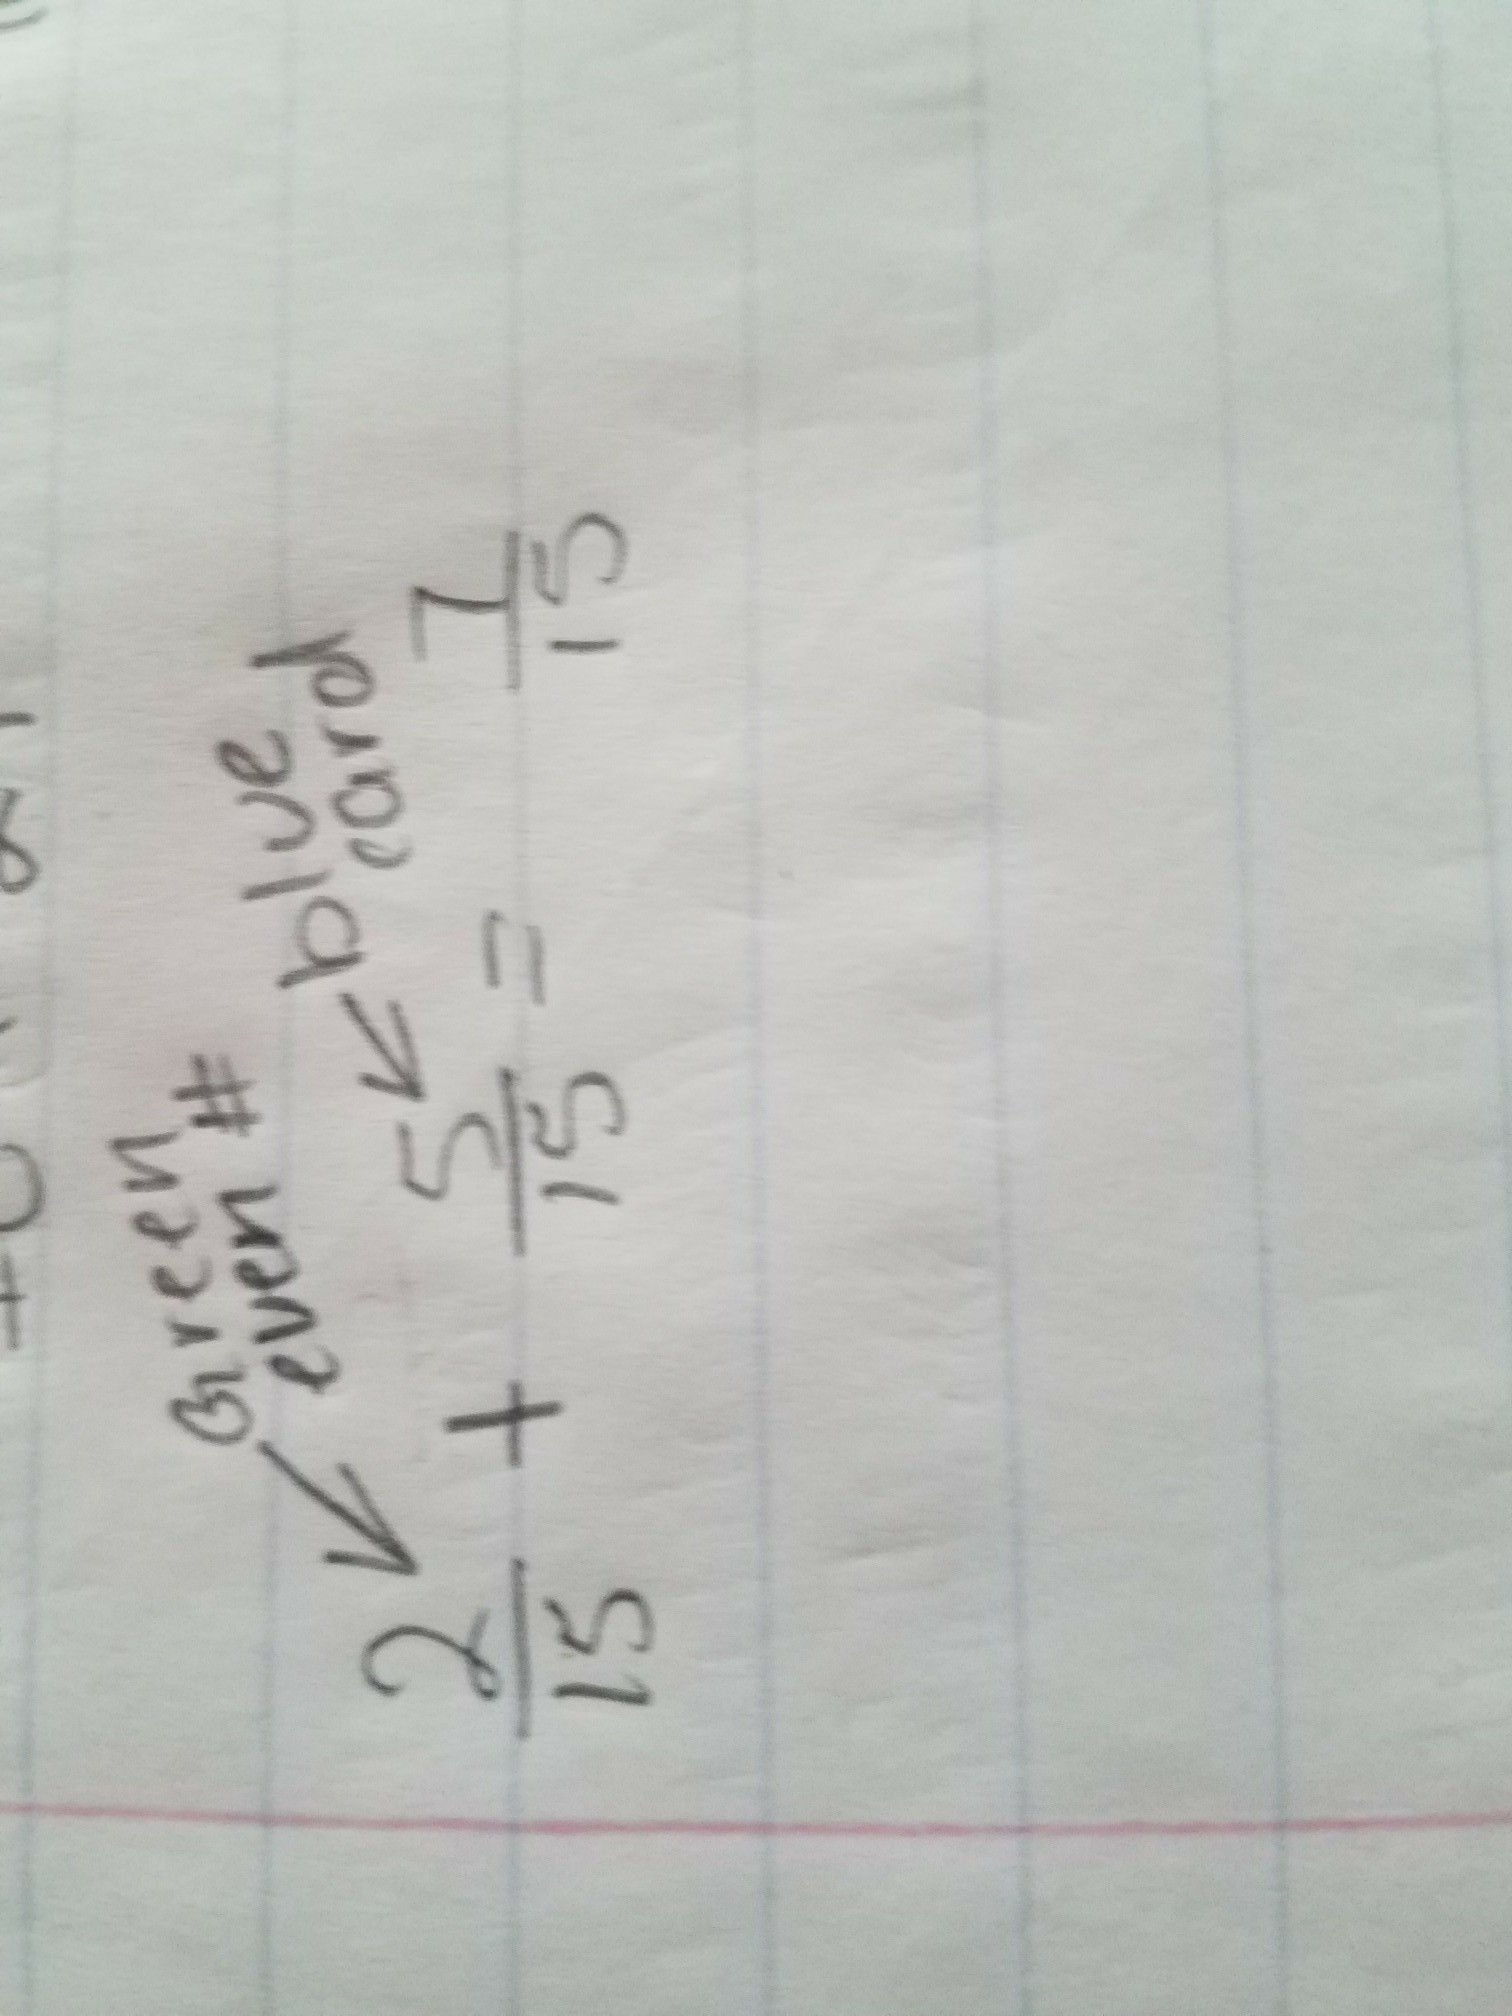 Green
even # blue
card
2/15 + 5/15 = 7/15